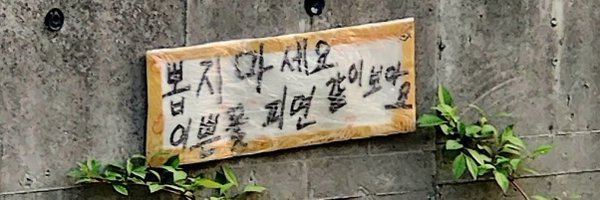 뽑지 마세요
이쁜 꽃 피면 같이 보아요